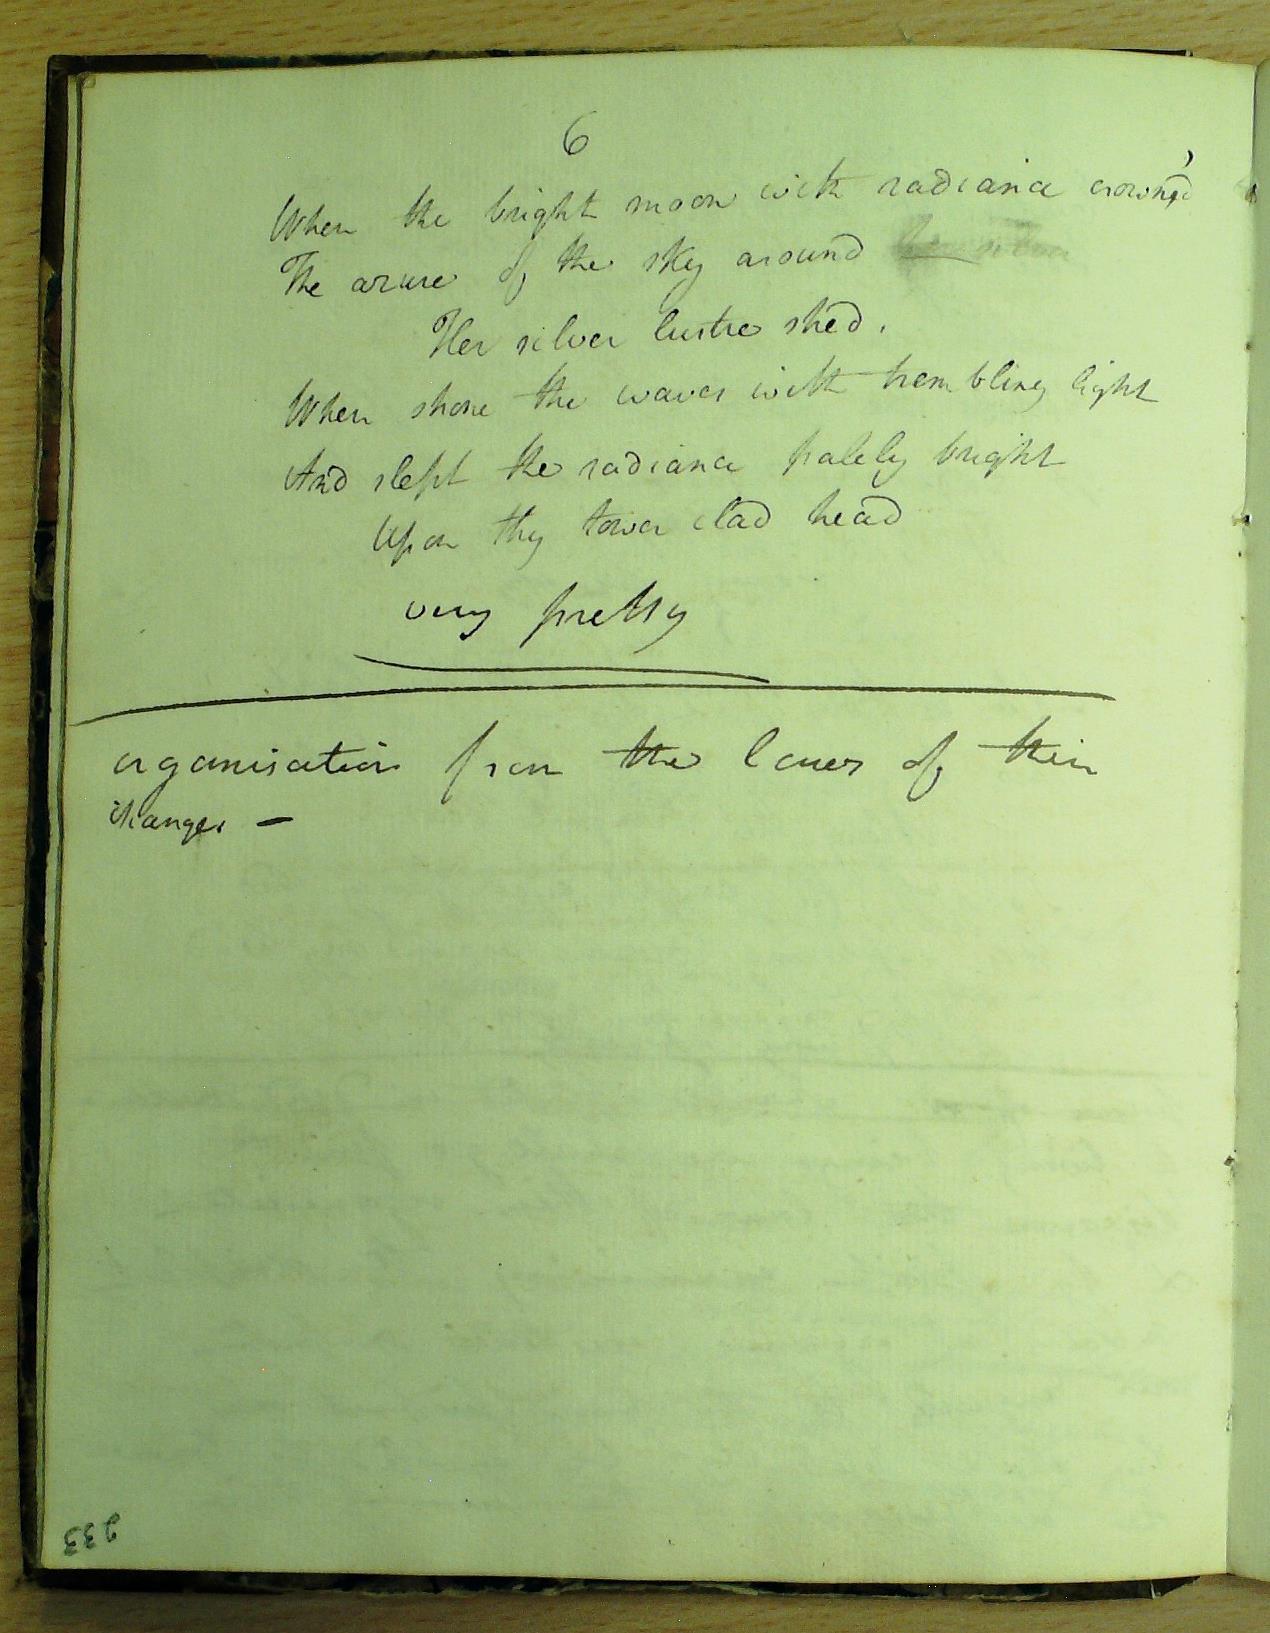 6
When the bright moon with radiance crown'd
The azure of the sky around
Her silver lustre shed.
When shone the waves with trembling light
And slept the radiance palely bright
Upon thy tower clad head
very pretty
organisation from the laws of their
changes -
233